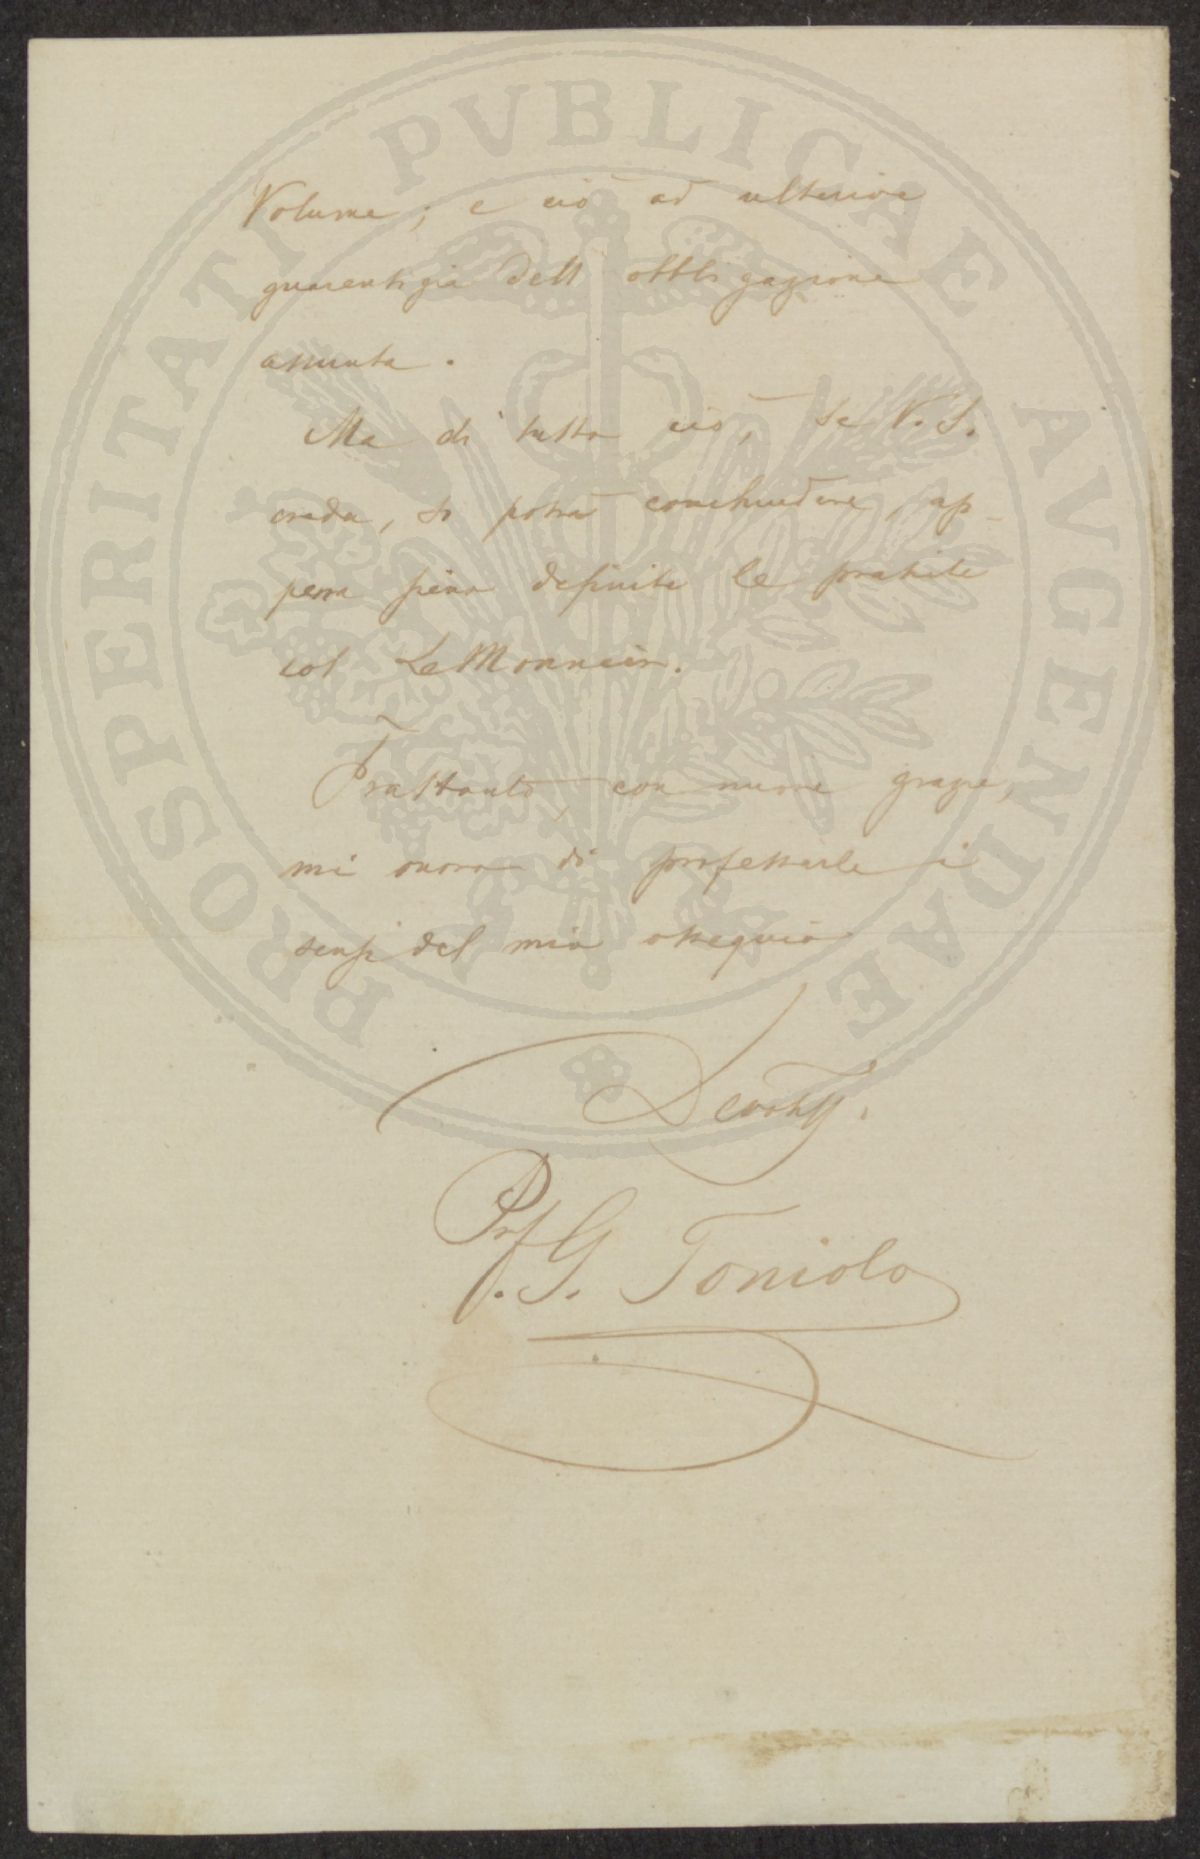 PROSPERITATI PVBLICAE AVGENDAE
Volume; e ciò ad ulteriore
guarentigia dell'obbligazione
assunta.
Ma di tutto ciò, se V. S.
creda, si potrà conchiudere, ap-
pena siano definite le pratiche
col LeMonnier.
Frattanto, con nuove grazie,
mi onoro di professarle i
sensi del mio ossequio
Devotss.
Prof. G. Toniolo